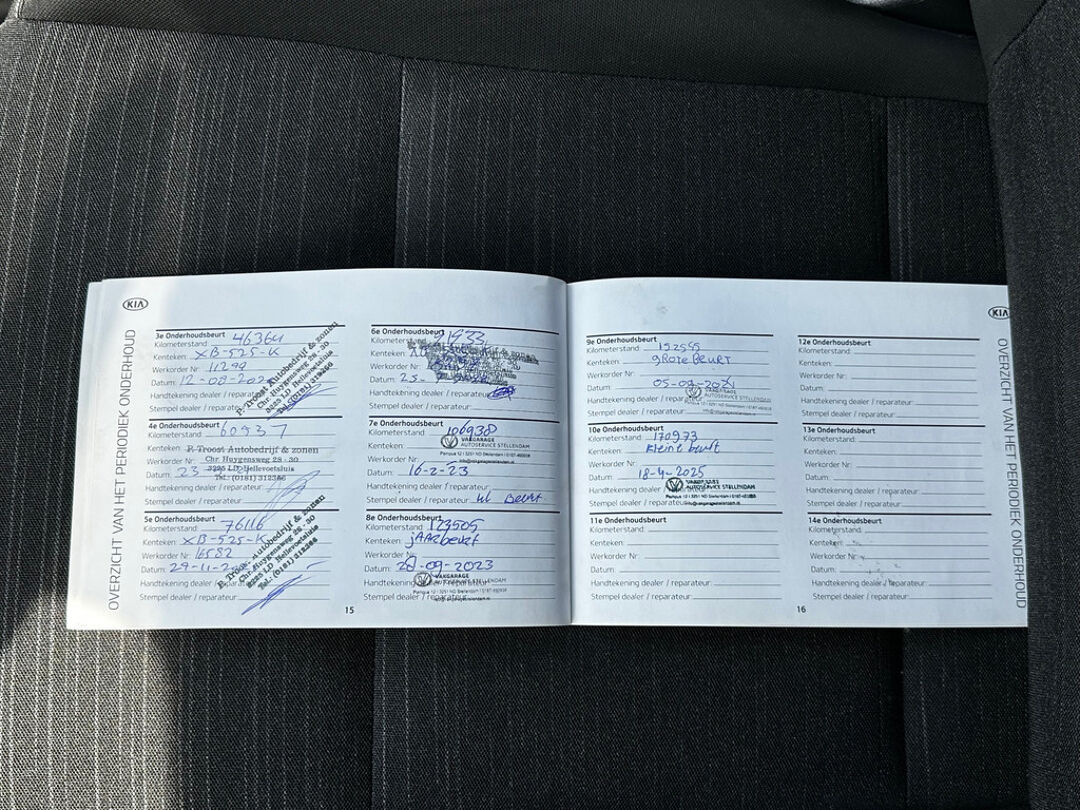 KIA
OVERZICHT VAN HET PERIODIEK ONDERHOUD
3e Onderhoudsbeurt
Kilometerstand: 46364
Kenteken: XB-525-K
Werkorder Nr.: 11299
Datum: 12-08-202
Handtekening dealer / reparateur:
Stempel dealer / reparateur:
P. Troost Autobedrijf & zonen
Chr. Huygensweg 28 - 30
3225 LD Hellevoetsluis
Tel: (0181) 312366
4e Onderhoudsbeurt
Kilometerstand: 60937
Kenteken:
Werkorder Nr.:
Datum: 23
Handtekening dealer / reparateur:
Stempel dealer / reparateur:
P. Troost Autobedrijf & zonen
Chr. Huygensweg 28 - 30
3225 LD Hellevoetsluis
Tel.: (0181) 312366
5e Onderhoudsbeurt
Kilometerstand: 76116
Kenteken: XB-525-K
Werkorder Nr.: 16582
Datum: 29-11-2
Handtekening dealer / reparateur:
Stempel dealer / reparateur:
P. Troost Autobedrijf & zonen
Chr. Huygensweg 28 - 30
3225 LD Hellevoetsluis
Tel.: (0181) 312366
6e Onderhoudsbeurt
Kilometerstand: 1933
Kenteken:
Werkorder Nr.:
Datum:
Handtekening dealer / reparateur:
Stempel dealer / reparateur:
7e Onderhoudsbeurt
Kilometerstand: 106938
Kenteken:
Werkorder Nr.:
Datum: 16-2-23
Handtekening dealer / reparateur:
Stempel dealer / reparateur: kl beurt
VAKGARAGE
AUTOSERVICE STELLENDAM
8e Onderhoudsbeurt
Kilometerstand: 123505
Kenteken: jAARbeurt
Werkorder Nr.:
Datum: 20-09-2023
Handtekening dealer / reparateur:
Stempel dealer / reparateur:
VAKGARAGE
AUTOSERVICE STELLENDAM
15
9e Onderhoudsbeurt
Kilometerstand: 152555
Kenteken: grote Beurt
Werkorder Nr.:
Datum:
Handtekening dealer / reparateur:
Stempel dealer / reparateur:
VAKGARAGE
AUTOSERVICE STELLENDAM
10e Onderhoudsbeurt
Kilometerstand: 170973
Kenteken: kleine beurt
Werkorder Nr.:
Datum: 18-4-2025
Handtekening dealer
Stempel dealer / reparateur:
AUTOSERVICE STELLENDAM
11e Onderhoudsbeurt
Kilometerstand:
Kenteken:
Werkorder Nr.:
Datum:
Handtekening dealer / reparateur:
Stempel dealer / reparateur:
12e Onderhoudsbeurt
Kilometerstand:
Kenteken:
Werkorder Nr.:
Datum:
Handtekening dealer / reparateur:
Stempel dealer / reparateur:
13e Onderhoudsbeurt
Kilometerstand:
Kenteken:
Werkorder Nr.:
Datum:
Handtekening dealer / reparateur:
Stempel dealer / reparateur:
14e Onderhoudsbeurt
Kilometerstand:
Kenteken:
Werkorder Nr.:
Datum:
Handtekening dealer / reparateur:
Stempel dealer / reparateur:
16
KIA
OVERZICHT VAN HET PERIODIEK ONDERHOUD